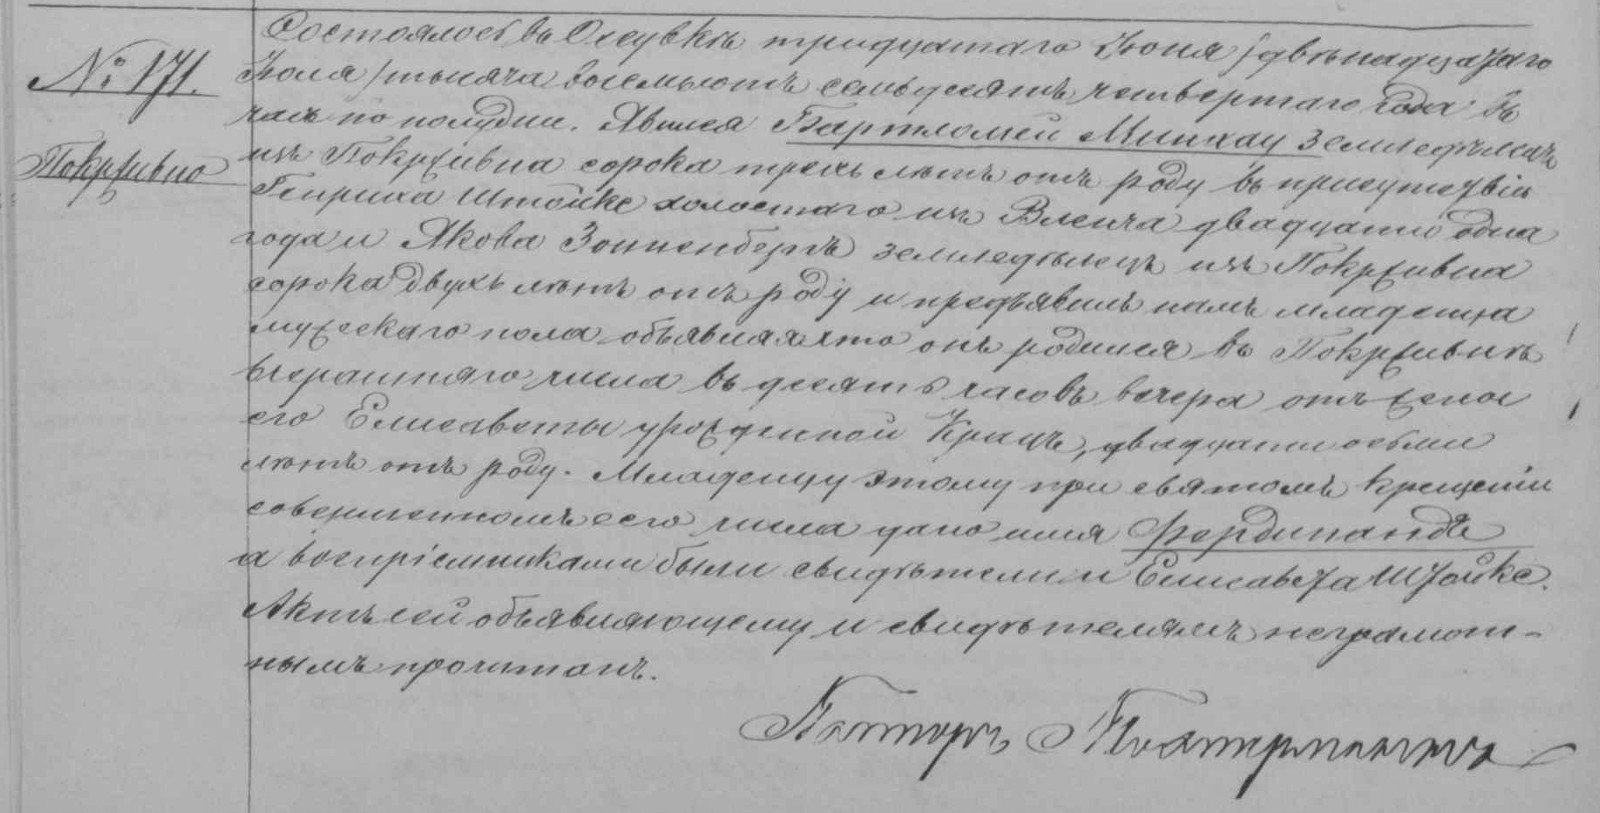 № 171.
Покрживно
Состоялось въ Осувкѣ тридцатаго Іюня /двѣнадцатаго
Іюля/ тысяча восемьсотъ семьдесятъ четвертаго года въ
часъ по полудни. Явился Бартломей Минхау земледѣлецъ
изъ Покрживна сорока трехъ лѣтъ отъ роду въ присутствіи
Генриха Штойке холостаго изъ Влеича двадцати одна
года и Якова Зонненбергъ земледѣлецъ изъ Покрживна
сорока двухъ лѣтъ отъ роду и предъявилъ намъ младенца
мужескаго пола объявляя что онъ родился въ Покрживнѣ
вчерашняго числа въ десять часовъ вечера отъ жены
его Елисаветы урожденной Крацъ, двадцати осьми
лѣтъ отъ роду. Младенцу этому при святомъ крещеніи
совершенномъ сего числа дано имя Фердинандъ
а воспріемниками были свидѣтели и Елисавета Штойке.
Актъ сей объявляющему и свидѣтелямъ неграмот-
нымъ прочитанъ.
Пасторъ